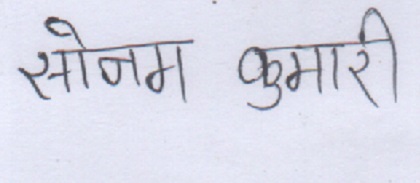 सोनम कुमारी